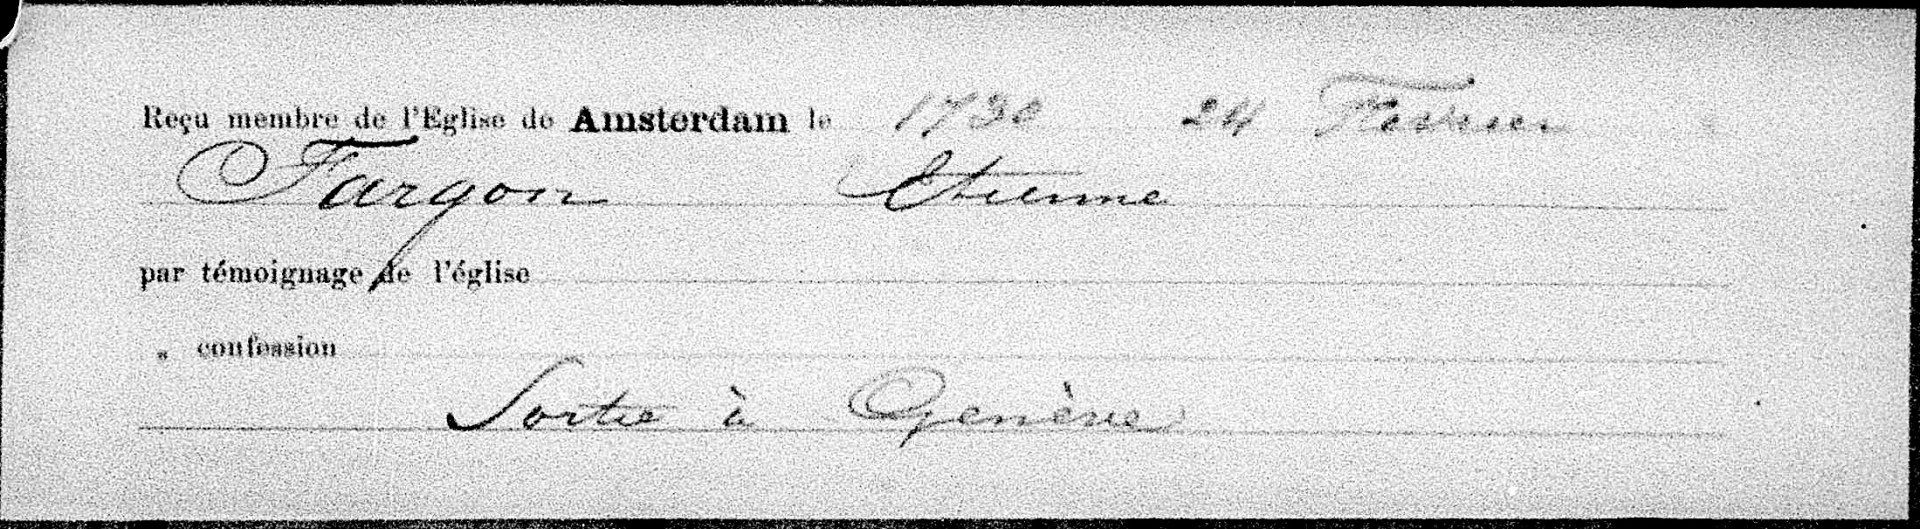 Reçu membre de l'Eglise de Amsterdam le 1730 24 Fevrier
Fargon Etienne
par témoignage de l'église
„ confession
Sortie à Genève